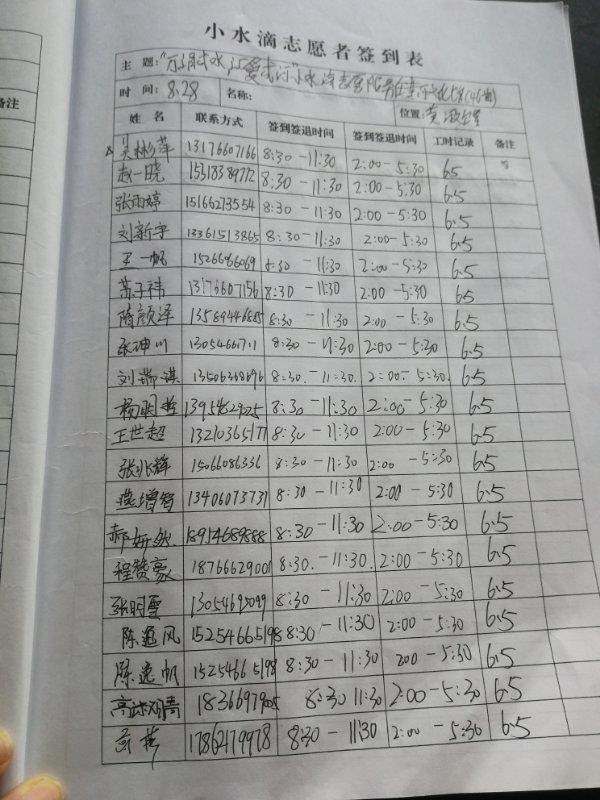 小水滴志愿者签到表
主 题:
时 间: 8.28 名称: 位置:
姓 名 联系方式 签到签退时间 签到签退时间 工时记录 备注
吴彬萍 13176607166 8:30-11:30 2:00-5:30 6.5
赵一晓 15318389772 8:30-11:30 2:00-5:30 6.5
张雨婷 15166273554 8:30-11:30 2:00-5:30 6.5
刘新宇 13361513865 8:30-11:30 2:00-5:30 6.5
王一帆 8:30-11:30 2:00-5:30 6.5
8:30-11:30 2:00-5:30 6.5
隋颜泽 8:30-11:30 2:00-5:30 6.5
张坤川 8:30-11:30 2:00-5:30 6.5
刘瑞淇 8:30-11:30 2:00-5:30 6.5
8:30-11:30 2:00-5:30 6.5
王世超 13210365177 8:30-11:30 2:00-5:30 6.5
张兆辉 15066086336 8:30-11:30 2:00-5:30 6.5
燕增智 13406073731 8:30-11:30 2:00-5:30 6.5
郝妍然 18914689888 8:30-11:30 2:00-5:30 6.5
程赞豪 18766629001 8:30-11:30 2:00-5:30 6.5
张明雪 8:30-11:30 2:00-5:30 6.5
陈逸风 15254665198 8:30-11:30 2:00-5:30 6.5
陈逸帆 15254665198 8:30-11:30 200-5:30 6.5
8:30 11:30 2:00-5:30 6.5
17862479978 8:30-11:30 2:00-5:30 6.5
备注